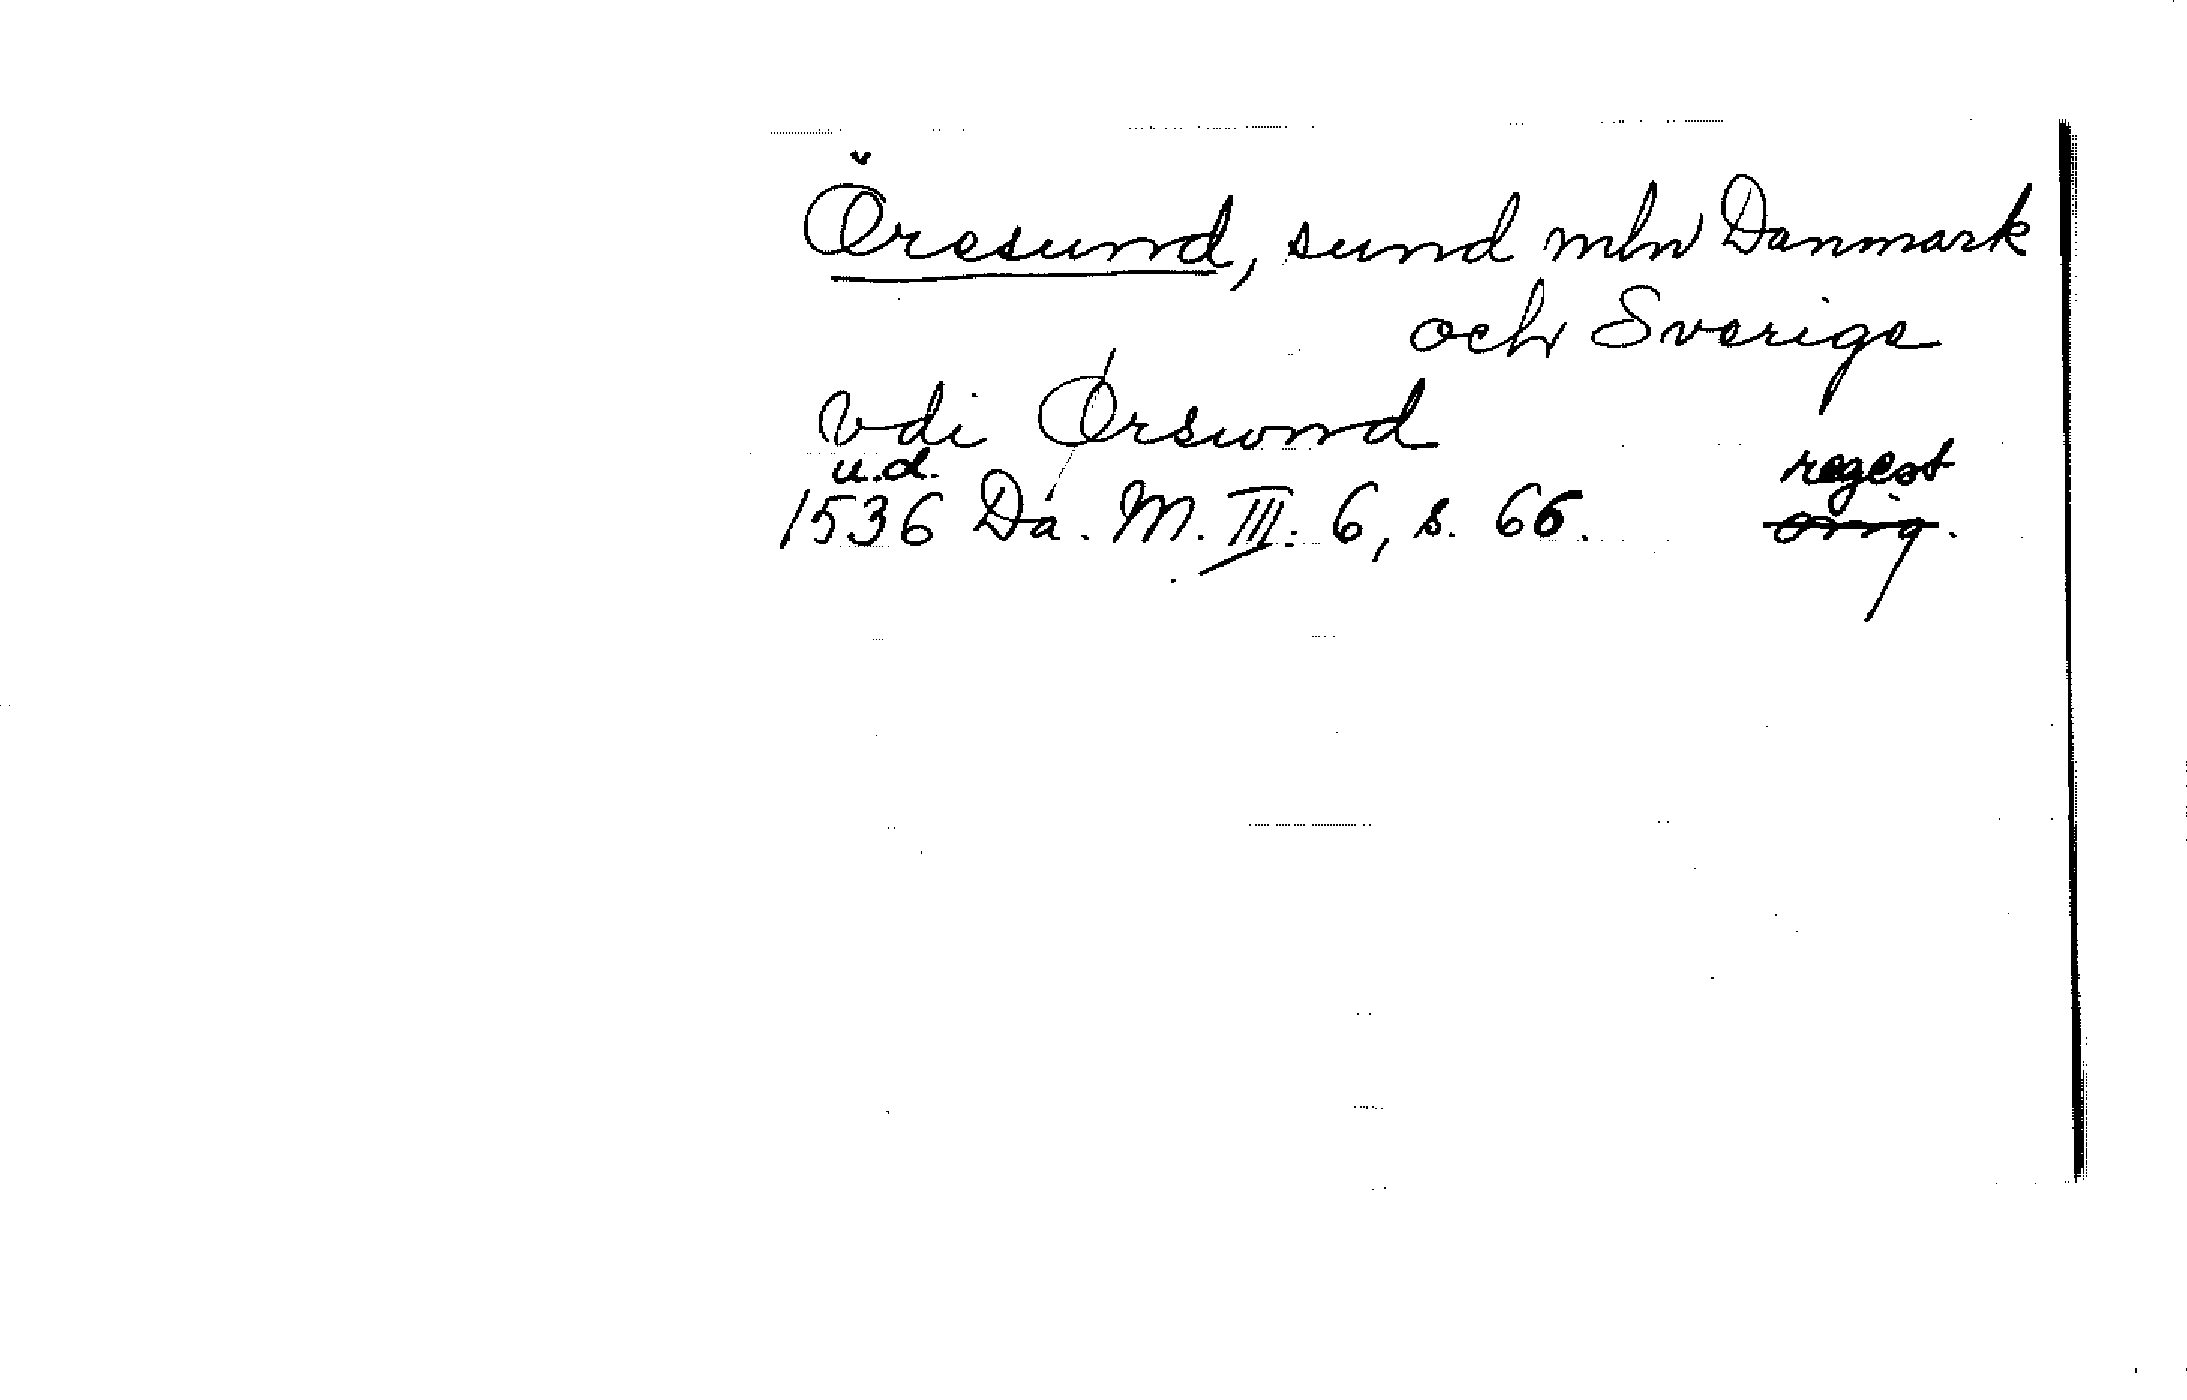 Öresund, sund mln Danmark
och Sverige
vdi Ørswnd
u.d.
1536 Da. M. III. 6, s. 66. regest
orig.